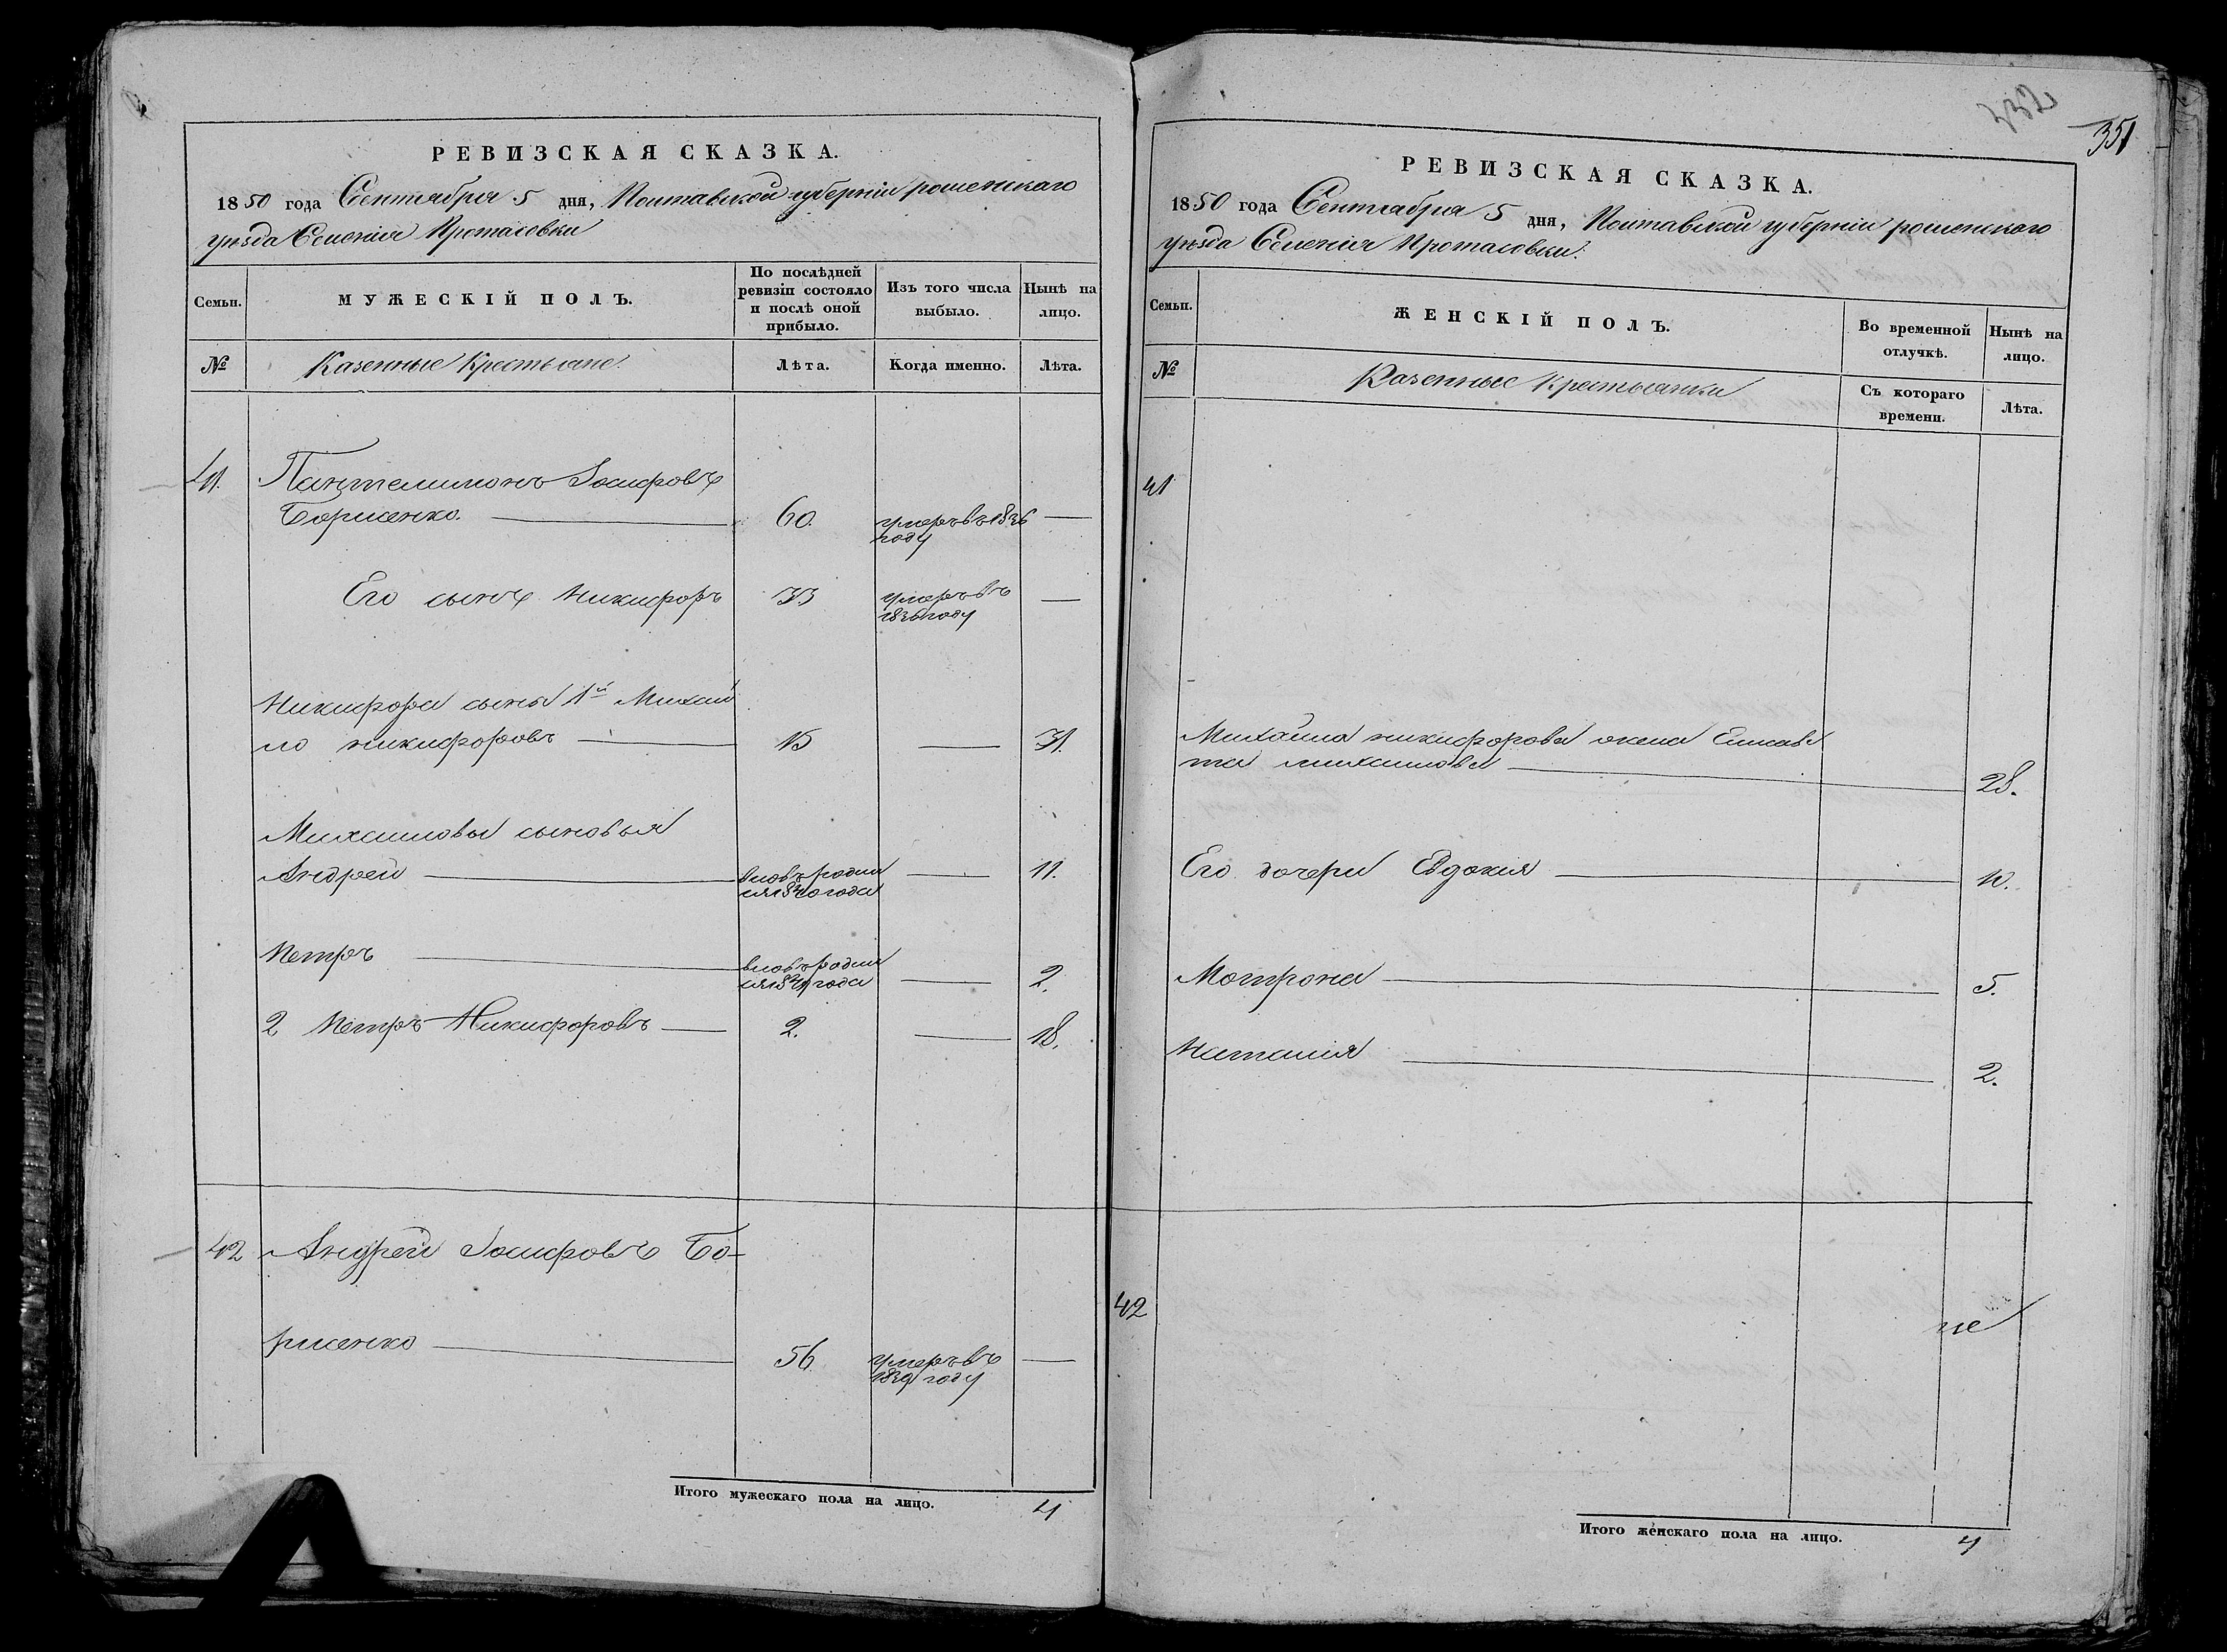 РЕВИЗСКАЯ СКАЗКА.
1850 года Сентября 5 дня, Полтавской губернiи роменскаго
уѣзда Селенiя Протасовки
Семьи.
МУЖЕСКІЙ ПОЛЪ.
По послѣдней ревизіи состояло и послѣ оной прибыло.
Изъ того числа выбыло.
Нынѣ на лицо.
№
Казенные Крестьяне.
Лѣта.
Когда именно.
Лѣта.
41. Пантелимонъ Іосифовъ
Борисенко. 60. умеръ въ 1836 году
Его сынъ Никифоръ 33 умеръ въ 1836 году
Никифора сыны 1й Михай
ло никифоровъ 15 31.
Михайловы сыновья
Андрей вновь родился 1840 года 11.
Петръ вновь родился года 2.
2 Петръ Никифоровъ 2. 18.
42 Андрей Іосифовъ Бо-
рисенко 56. умеръ въ 1839 году
Итого мужескаго пола на лицо. 4
332
351
РЕВИЗСКАЯ СКАЗКА.
1850 года Сентября 5 дня, Полтавской губернiи роменскаго
уѣзда Селенiя Протасовки.
Семьи.
ЖЕНСКІЙ ПОЛЪ.
Во временной отлучкѣ.
Нынѣ на лицо.
№
Казенные Крестьянки
Съ котораго времени.
Лѣта.
41
Михайла никифорова жена Елисаве
та михайлова 28.
Его дочери Евдокия 10.
Мотрона 5.
Наталия 2.
42
Итого женскаго пола на лицо. 4